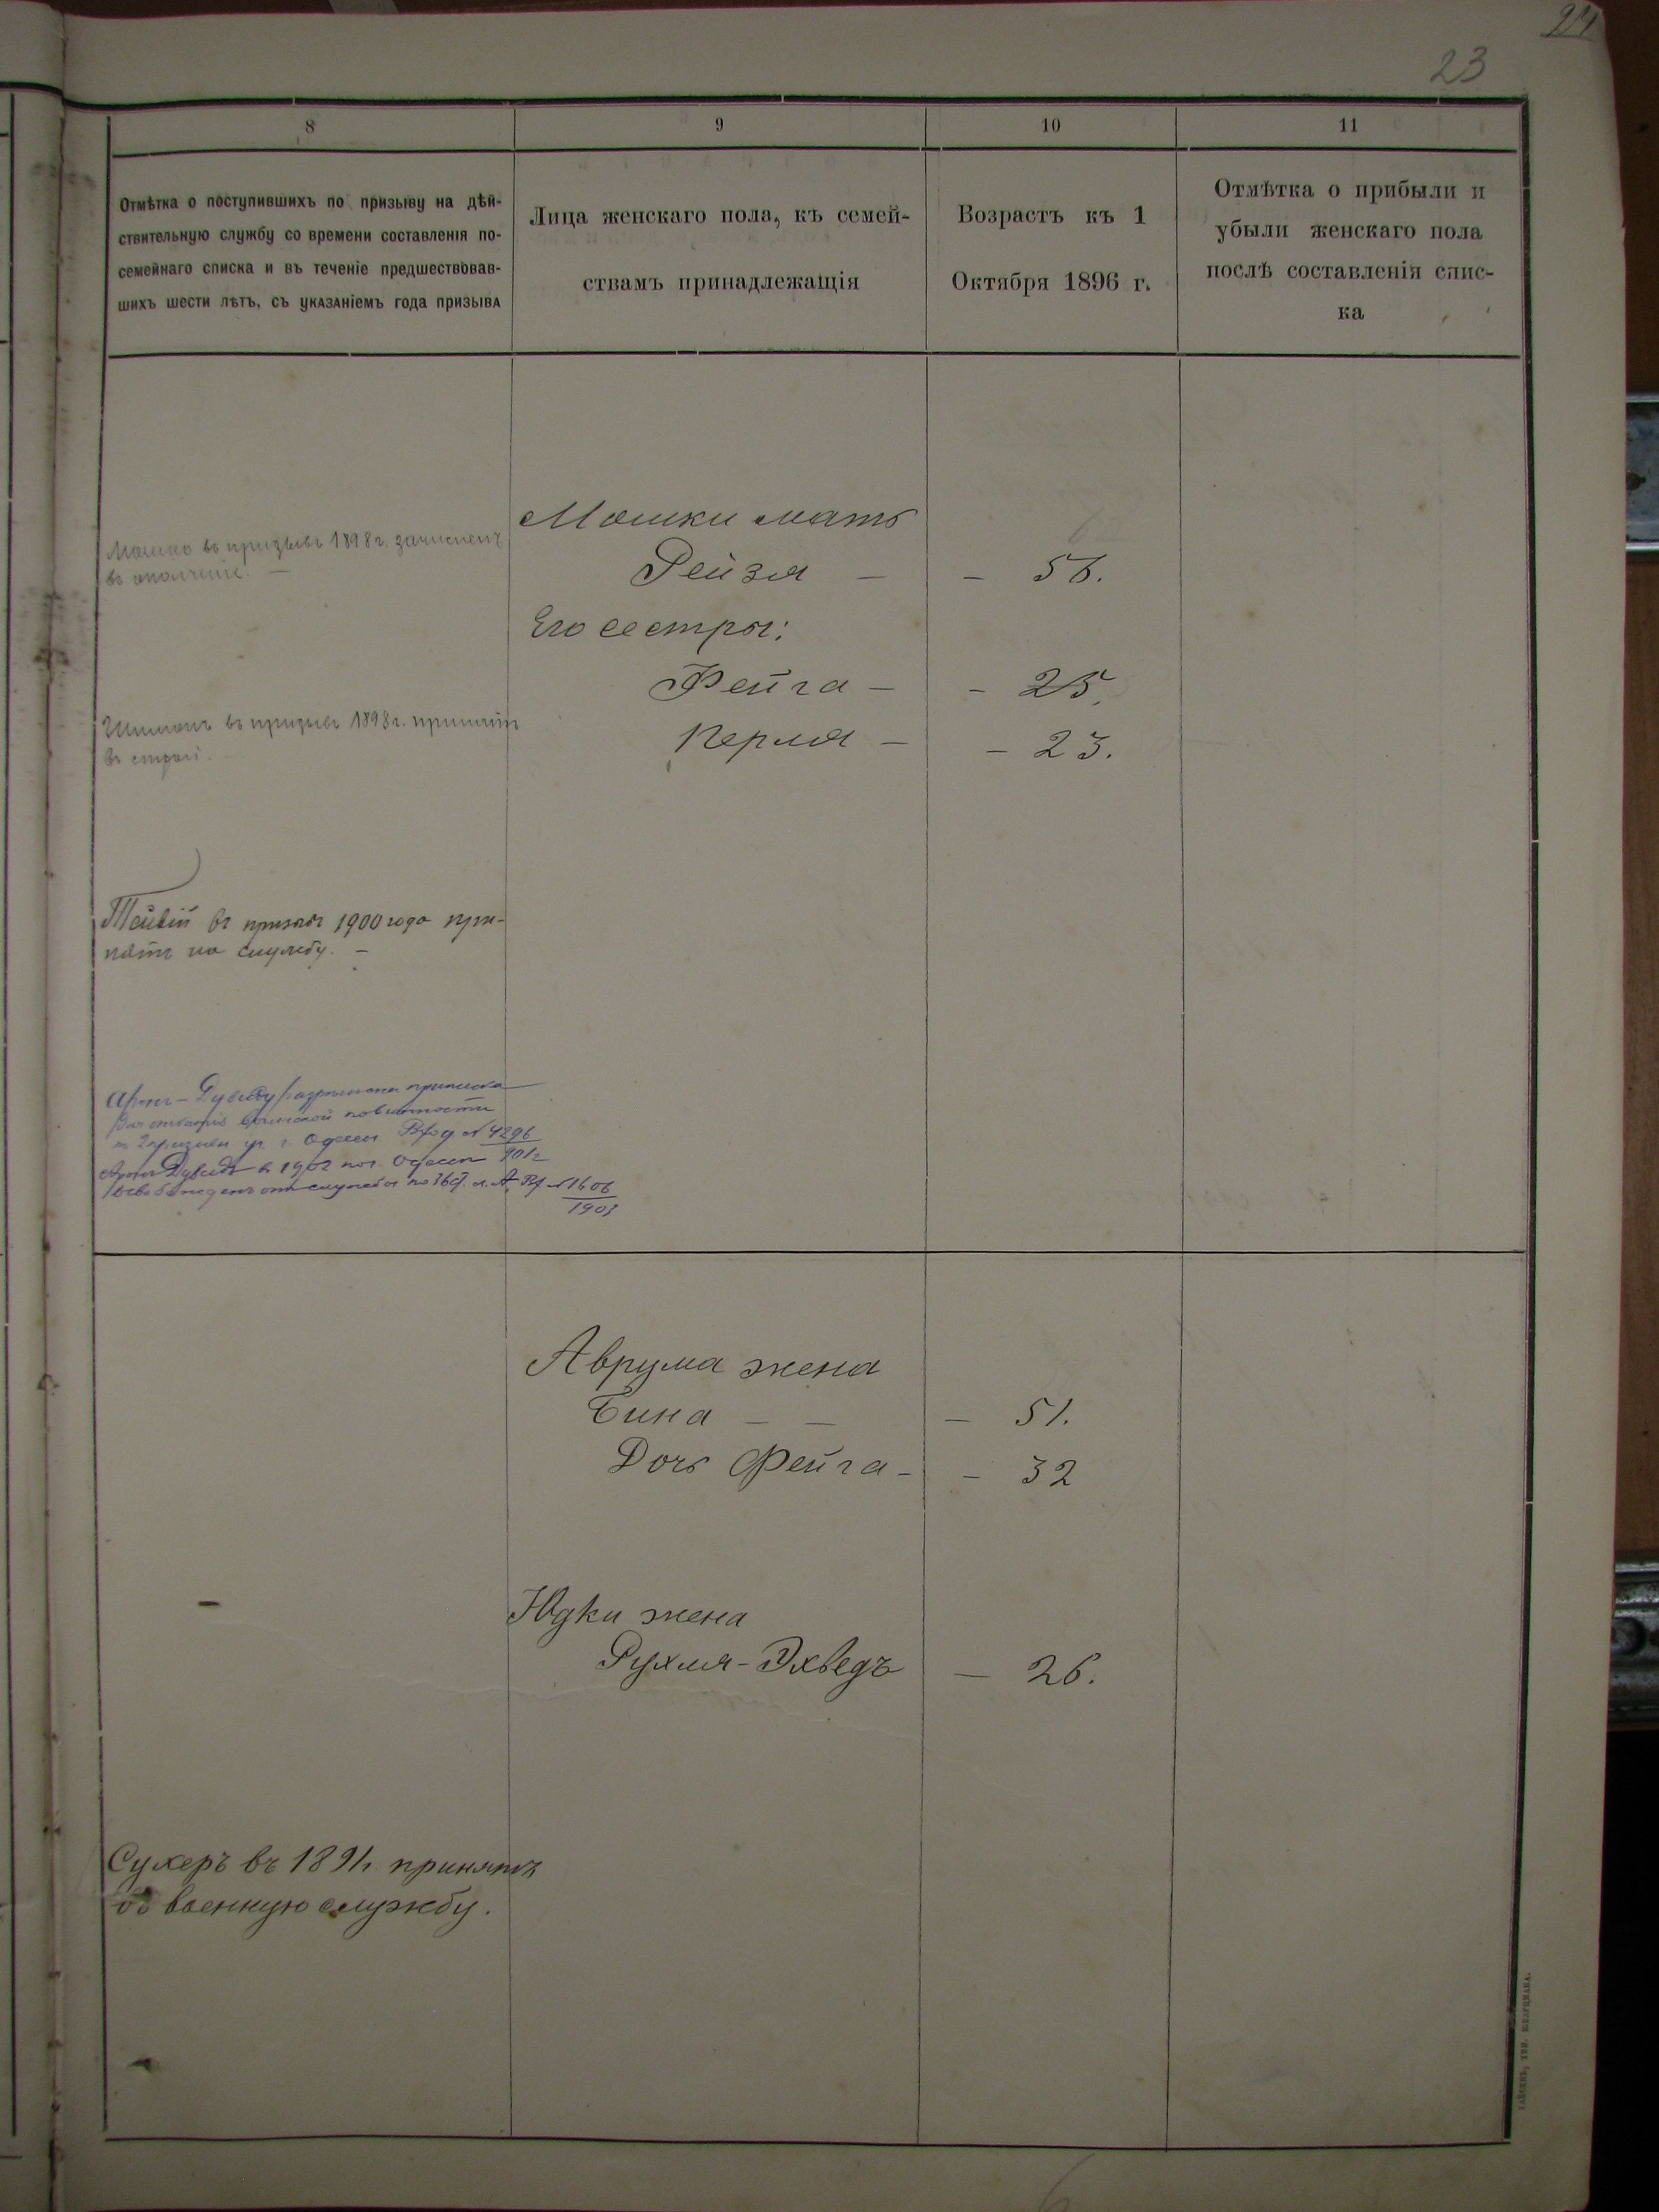 24
23
8
9
10
11
Отмѣтка о поступившихъ по призыву на дѣй-
ствительную службу со времени составленія по-
семейнаго списка и въ теченіе предшествовав-
шихъ шести лѣтъ, съ указаніемъ года призыва
Лица женскаго пола, къ семей-
ствамъ принадлежащія
Возрастъ къ 1
Октября 1896 г.
Отмѣтка о прибыли и
убыли женскаго пола
послѣ составленія спис-
ка
Мошко въ призывъ 1898 г. зачисленъ
въ ополченіе. —
Мошки мать
Рейзя — — 56.
Его сестры:
Фейга — — 25.
Шимонъ въ призывъ 1898 г. принятъ
въ строй.
Перля — — 23.
Тейвій въ призывъ 1900 года при-
нятъ на службу. —
Аронъ-Дувиду разрѣшена приписка
для отбытія воинской повинности
г. Одессы № 4296
Аронъ Дувидъ въ 1902
освобожденъ отъ службы по № 1606
1903
Аврума жена
Бина — — — 51.
Дочь Фейга — — 32
Юдки жена
Рухля-Эхведъ — 26.
Сухеръ въ 1891 г. принятъ
въ военную службу.